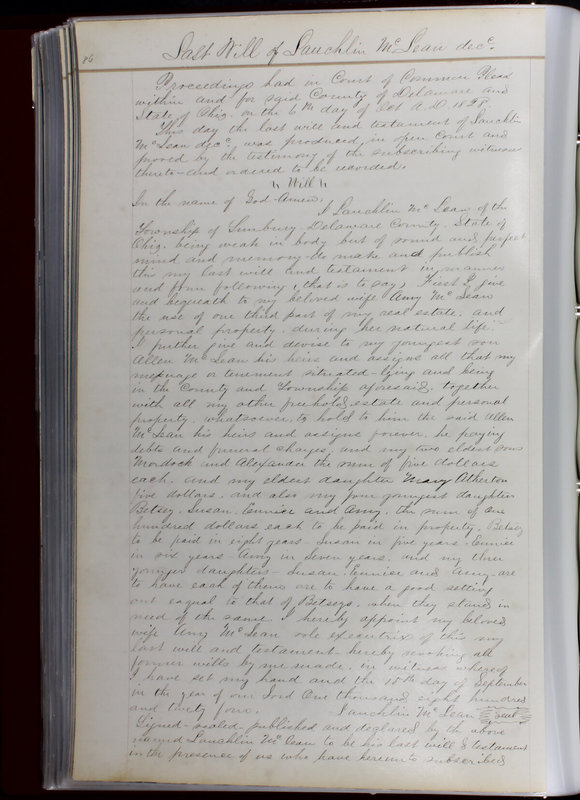 86
Last Will of Lauchlin McLean decc.
Proceedings had in Court of Common Pleas
within and for said County of Delaware and
State of Ohio. on the 6th day of Oct A.D. 1828.
This day the last will and testament of Lauchlin
McLean decc. was produced in open Court and
proved by the testimony of the subscribing witnesses
thereto- and ordered to be recorded.
"Will"
In the name of God- Amen.
I Lauchlin McLean of the
Township of Sunbury- Delaware County. State of
Ohio. being weak in body but of sound and perfect
mind and memory- do make and publish
this my last will and testament in manner
and form following, (that is to say) First I give
and bequeath to my beloved wife Amy McLean
the use of one third part of my real estate. and
personal property. during her natural life.
I further give and devise to my youngest son
Allen McLean his heirs and assigns all that my
messuage or tenement situated- lying and being
in the County and Township aforesaid, together
with all my other freehold estate and personal
property. whatsoever, to hold to him the said Allen
McLean his heirs and assigns forever. he paying
debts and funeral charges. and my two eldest sons
Mordock and Alexander the sum of five dollars
each. and my eldest daughter Mary Atherton
five dollars. and also my four youngest daughters
Betsey. Susan. Eunice and Amy. the sum of one
hundred dollars each to be paid in property. Betsey
to be paid in eight years- Susan in five years. Eunice
in six years- Amy in Seven years. and my three
younger daughters- Susan. Eunice and Amy- are
to have each of them are to have a good setting
out eaqual to that of Betseys. when they stand in
need of the same. I hereby appoint my beloved
wife Amy McLean sole executrix of this my
last will and testament- hereby revoking all
former wills by me made. in witness whereof
I have set my hand and the 15th day of September
in the year of our Lord One thousand eight hundred
and twenty four. Lauchlin McLean Seal
Signed- sealed- published and declared by the above
named Lauchlin McLean to be his last will & testament
in the presence of us who have hereunto subscribed